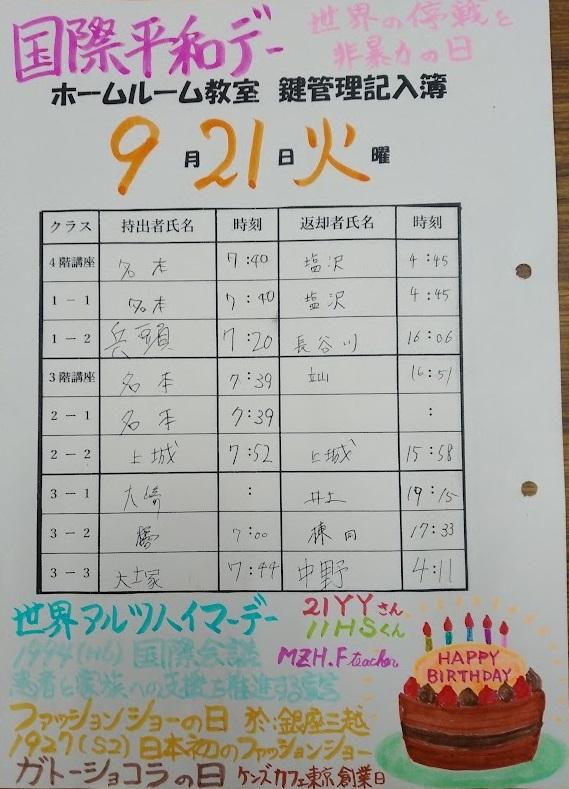 国際平和デー
世界の停戦と
非暴力の日
ホームルーム教室 鍵管理記入簿
9月21日火曜
クラス 持出者氏名 時刻 返却者氏名 時刻
4階講座 名本 7:40 塩沢 4:45
1-1 名本 7:40 塩沢 4:45
1-2 兵頭 7:20 長谷川 16:06
3階講座 名本 7:39 16:51
2-1 名本 7:39 :
2-2 上城 7:52 上城 15:58
3-1 大崎 : 井上 19:15
3-2 7:00 棟田 17:33
3-3 大塚 7:44 中野 4:11
世界アルツハイマーデー
21YYさん
11HSくん
MZH.F teacher
1994(H6) 国際会議
患者と家族への支援を推進する宣言
ファッションショーの日 於:銀座三越
1927(S2)日本初のファッションショー
ガトーショコラの日 ケンズカフェ東京創業日
HAPPY
BIRTHDAY